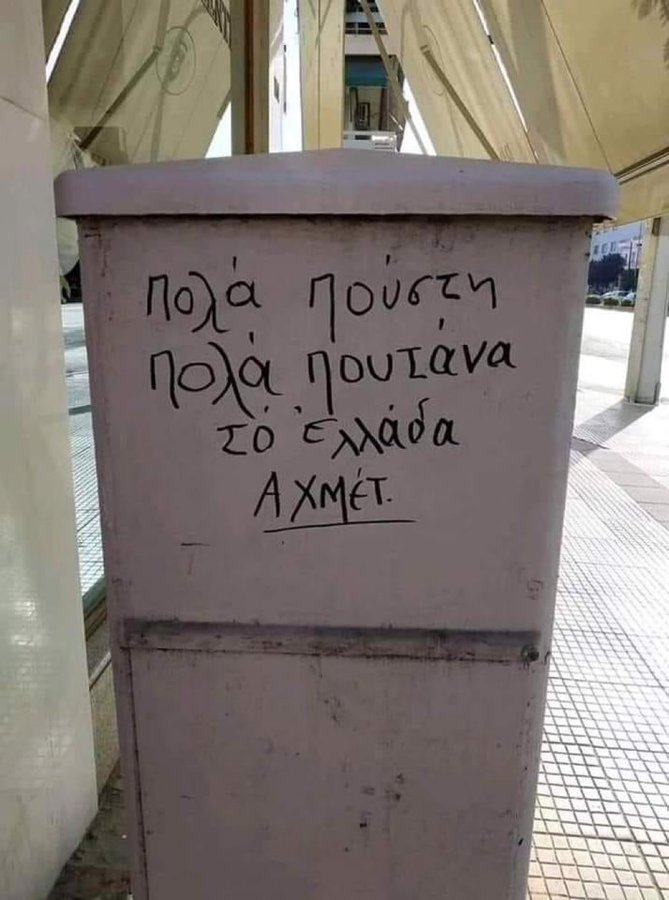 πολά πούστη
πολά πουτάνα
τό Ἑλλάδα
ΑΧΜέΤ.